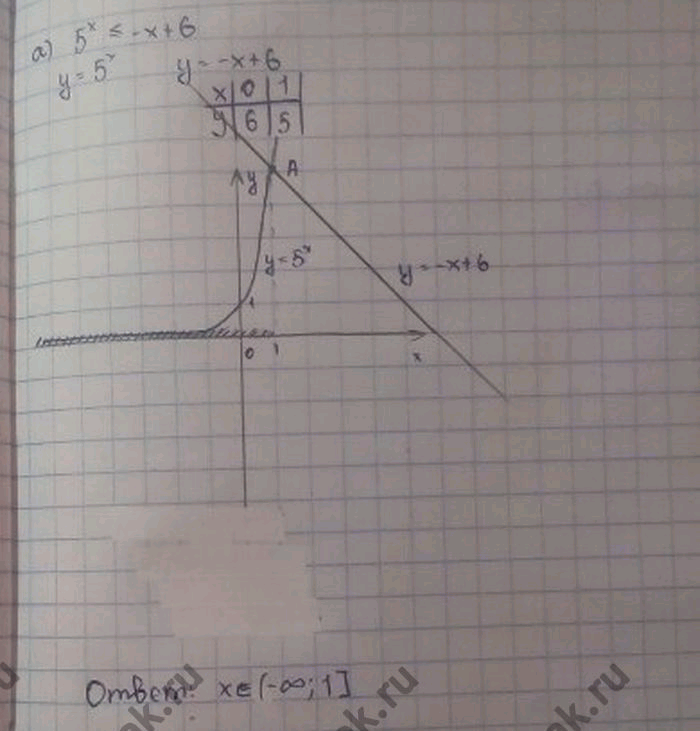 а) 5ˣ ≤ -x+6
y = 5ˣ
y = -x+6
x | 0 | 1
y | 6 | 5
y
A
y = 5ˣ
y = -x+6
1
0 1
x
Ответ: x ∈ (-∞; 1]
ak.ru
ak.ru